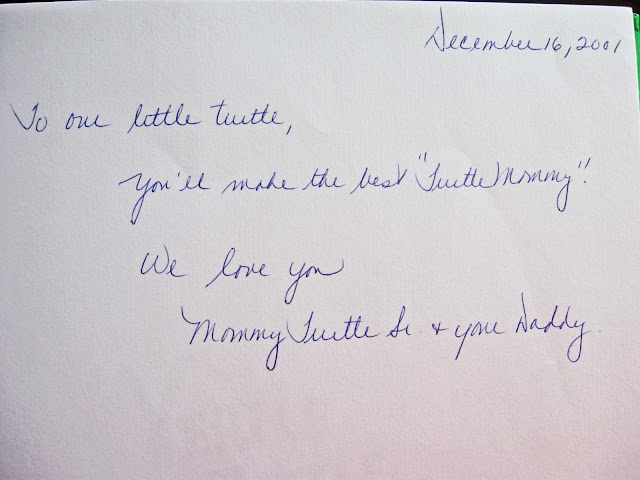 December 16, 2001
To our little turtle,
You'll make the best "Turtle Mommy"!
We love you
Mommy Turtle Sr. & your Daddy.